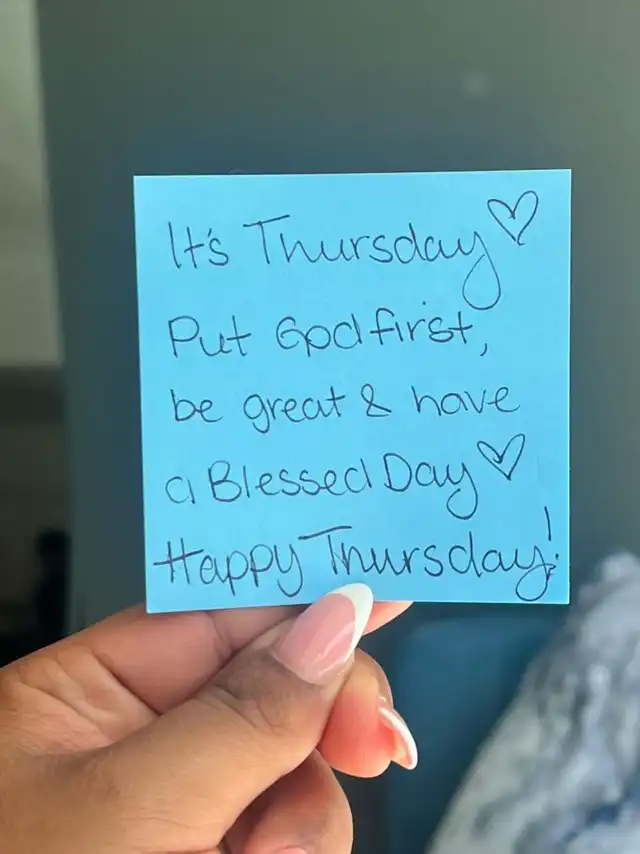 It's Thursday♡
Put God first,
be great & have
a Blessed Day♡
Happy Thursday!